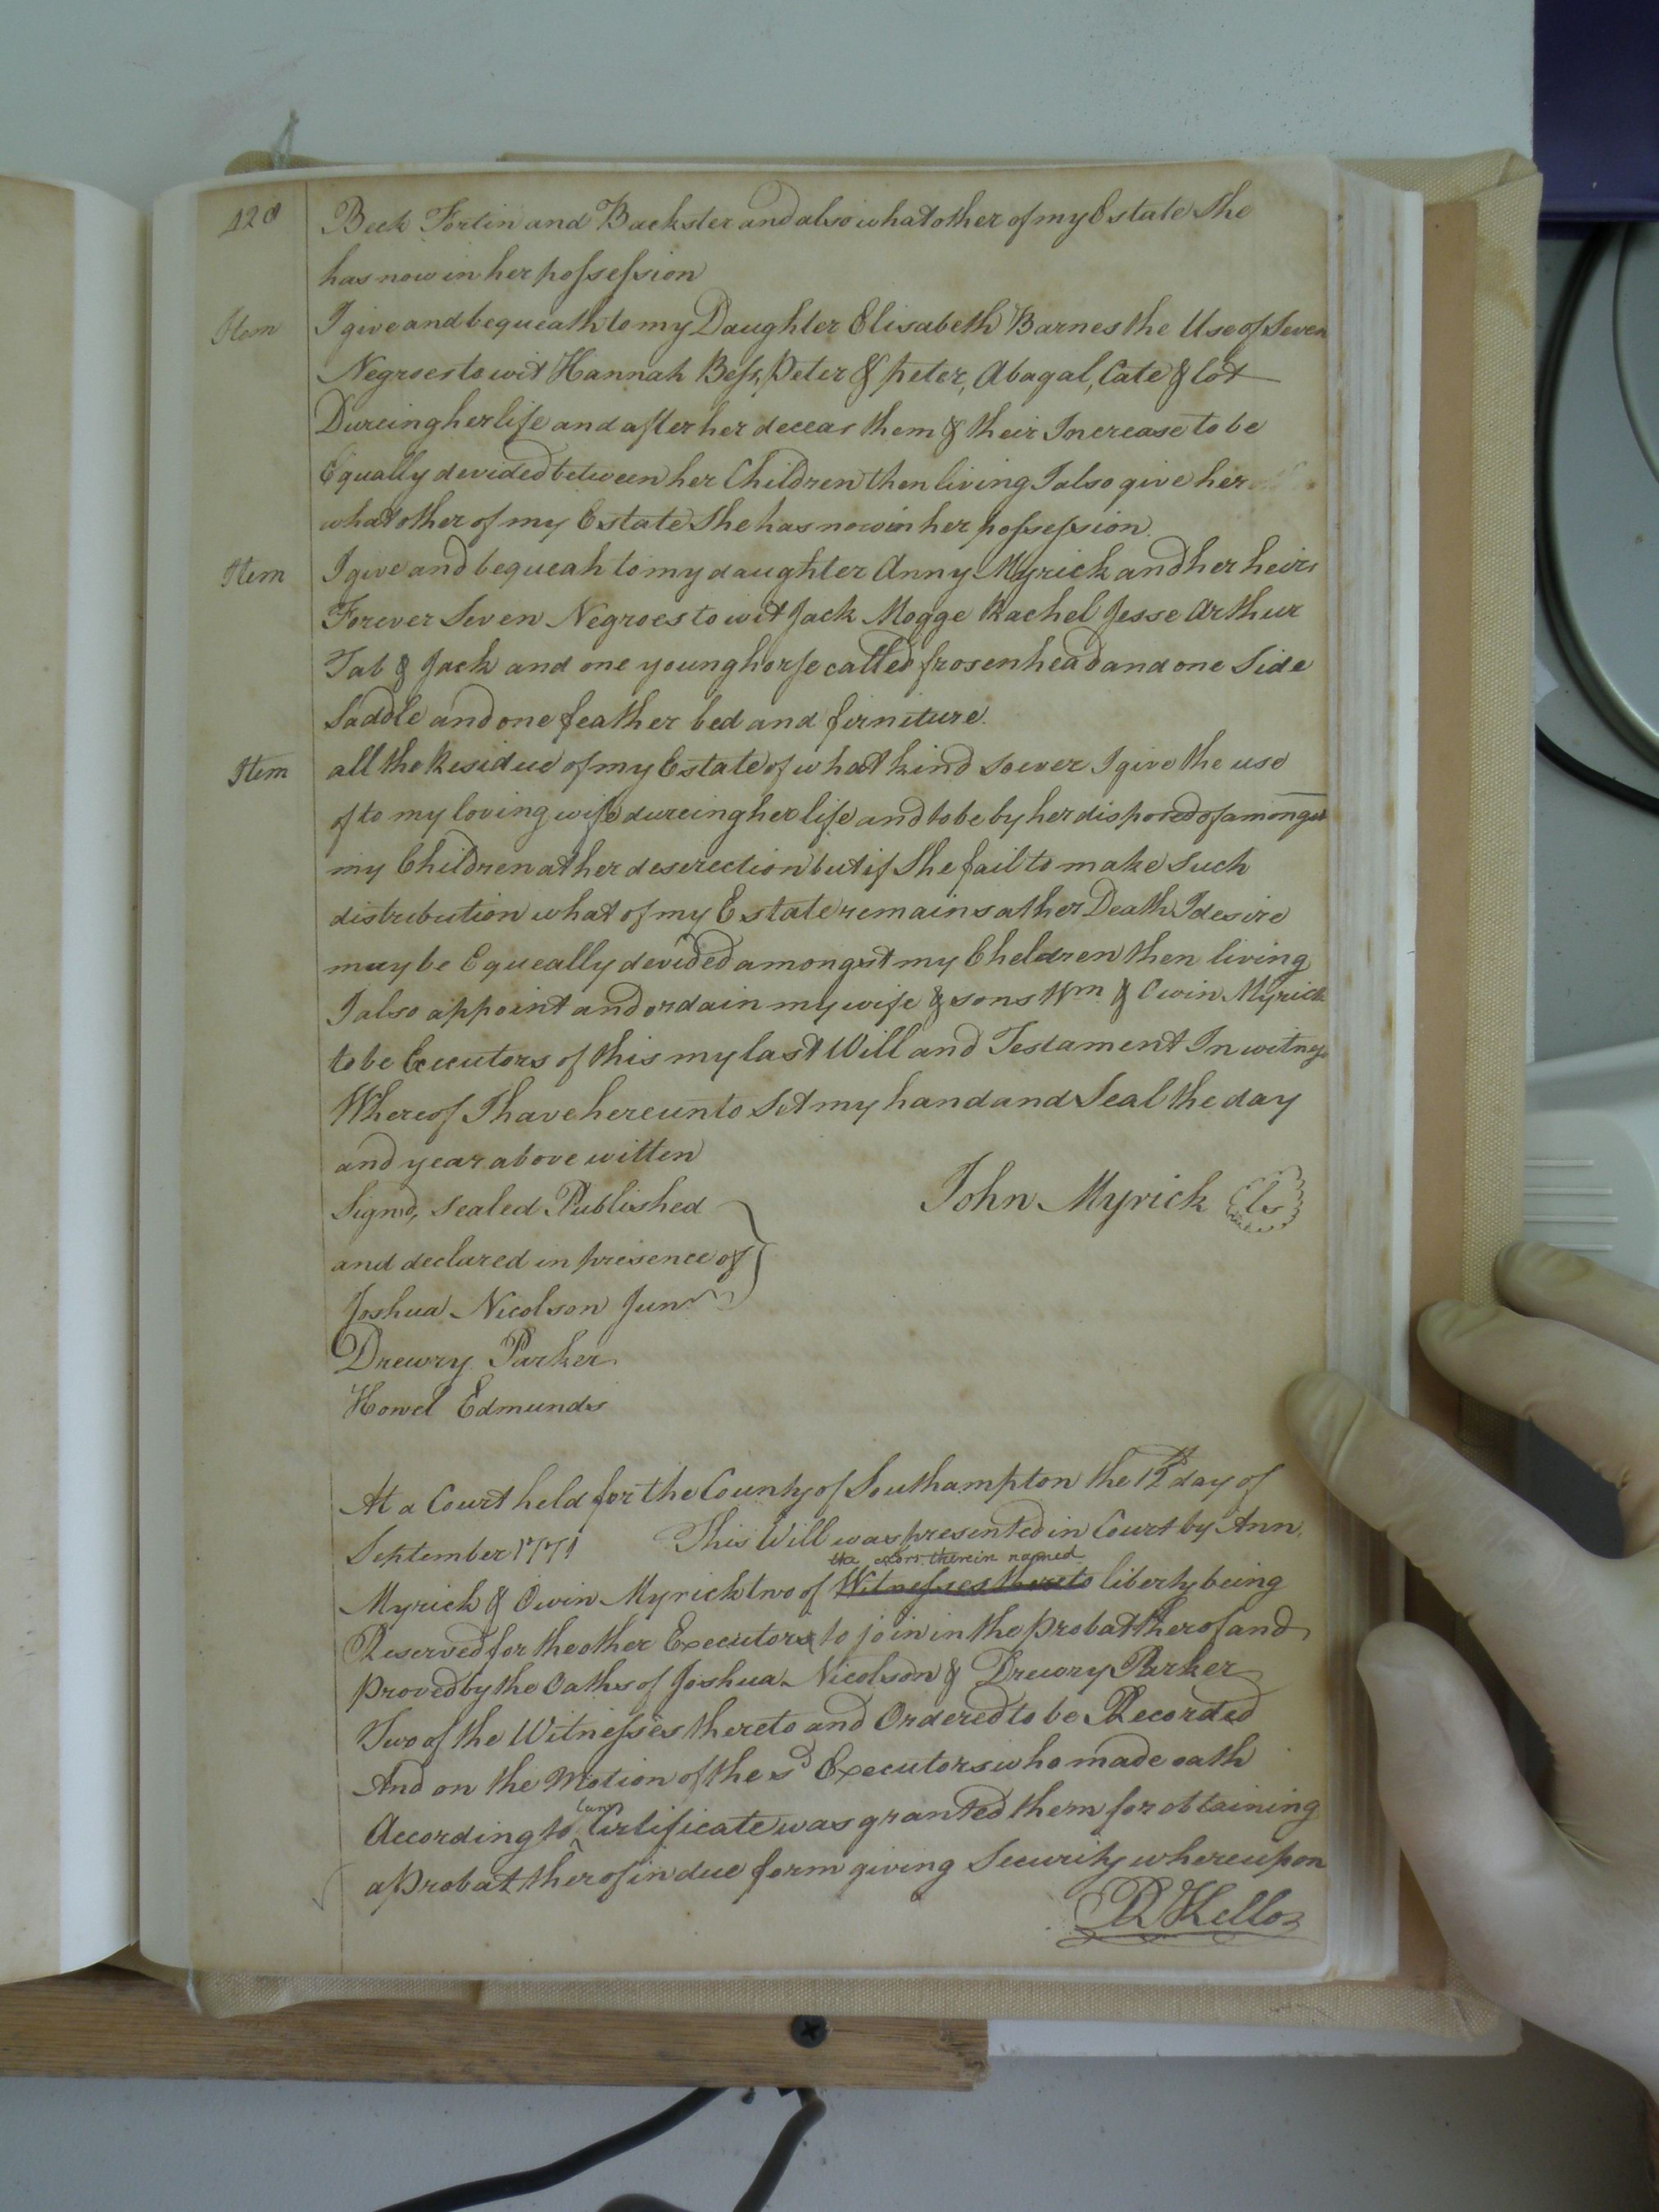 128
Beck Fortin and Backster and also what other of my Estate She
has now in her possession
Item I give and bequeath to my Daughter Elisabeth Barnes the Use of Seven
Negroes to wit Hannah Bess, Peter & peter, Abagal, Cate & Lot
Dureing her life and after her deceas them & their Increase to be
Equally devided between her Children then living I also give her
what other of my Estate She has now in her possession.
Item I give and bequeah to my daughter Anny Myrick and her heirs
Forever Seven Negroes to wit Jack Mogge Rachel Jesse Arthur
Tab & Jack and one young horse called frosenhead and one Side
Saddle and one feather bed and firniture.
Item all the Residue of my Estate of what kind soever I give the use
of to my loving wife dureing her life and to be by her disposed of amongst
my Children at her descrection but if She fail to make Such
distribution what of my Estate remains at her Death I desire
may be Equeally devided amongst my Cheldren then living
I also appoint and ordain my wife & sons Wm & Owin Myrick
to be Executors of this my last Will and Testament In witness
Whereof I have hereunto Set my hand and Seal the day
and year above witten
John Myrick Ls
Signd, Sealed Published
and declared in presence of
Joshua Nicolson Junr
Drewry Parker
Howel Edmunds
At a Court held for the County of Southampton the 12th day of
September 1771 This Will was presented in Court by Ann
the exors. therein named
Myrick & Owin Myrick two of Witnesses thereto liberty being
Reserved for the other Executors to join in the probat therof and
proved by the Oaths of Joshua Nicolson & Drewry Parker
Two of the Witnesses thereto and Ordered to be Recorded
And on the Motion of the sd Executors who made oath
Law
According to Certificate was granted them for obtaining
a probat therof in due form giving Security whereupon
R Kello